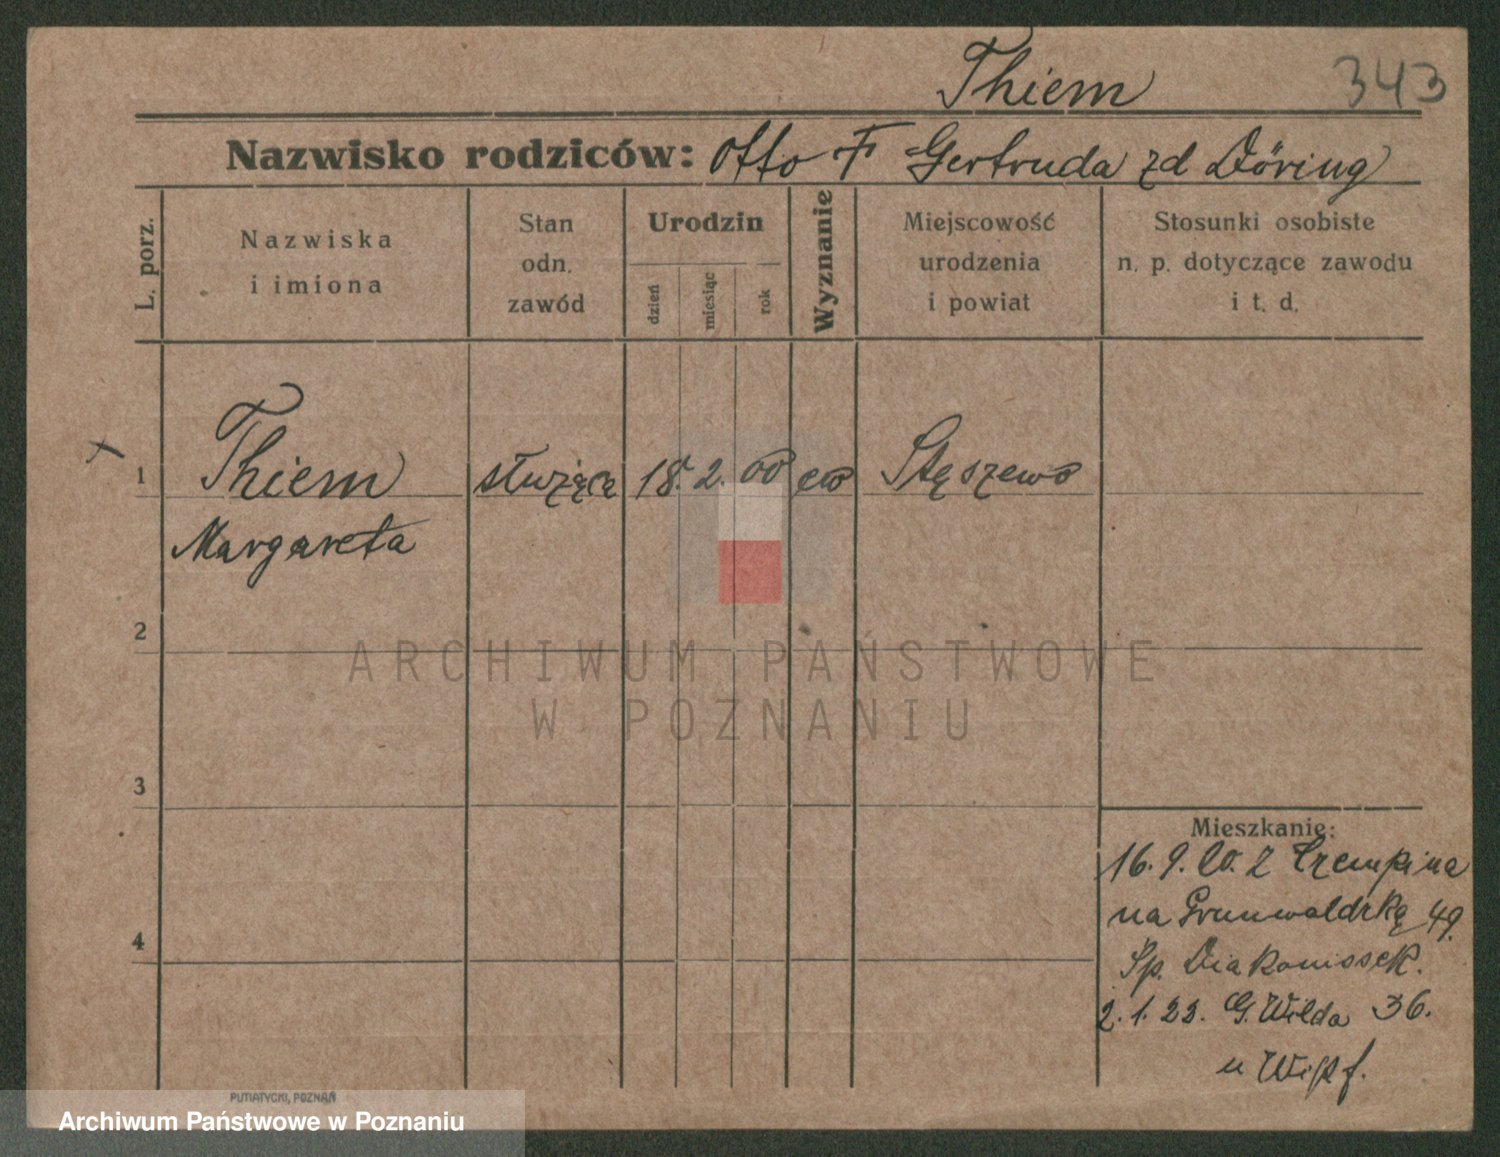 Thiem 343
Nazwisko rodziców: Otto F Gertruda zd Döring
L. porz.
Nazwiska
i imiona
Stan
odn.
zawód
Urodzin
dzień
miesiąc
rok
Wyznanie
Miejscowość
urodzenia
i powiat
Stosunki osobiste
n. p. dotyczące zawodu
i t. d.
1 Thiem służąca 18. 2. 00 ew Stęszewo
Margareta
2
ARCHIWUM PAŃSTWOWE
W POZNANIU
3
Mieszkanie:
16. 9. 20. Z Czempina
na Grunwaldzką 49.
4
Sp. Diakonissek.
2. 1. 23. G. Wilda 36.
u
PUTIATYCKI, POZNAŃ
Archiwum Państwowe w Poznaniu